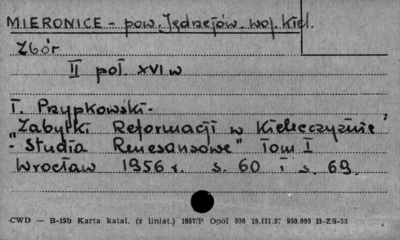 MIERONICE - pow. Jędrzejów. woj. Kiel.
Zbór
II poł. XVI w
T. Przypkowski -
"Zabytki Reformacji w Kielecczyźnie"
- Studia Renesansowe" Tom I
Wrocław 1956 r. s. 60 i s. 69.
CWD — B-15b Karta katal. (z liniat.) 1957/P Opol 390 19.III.57 930.000 B-ZS-50